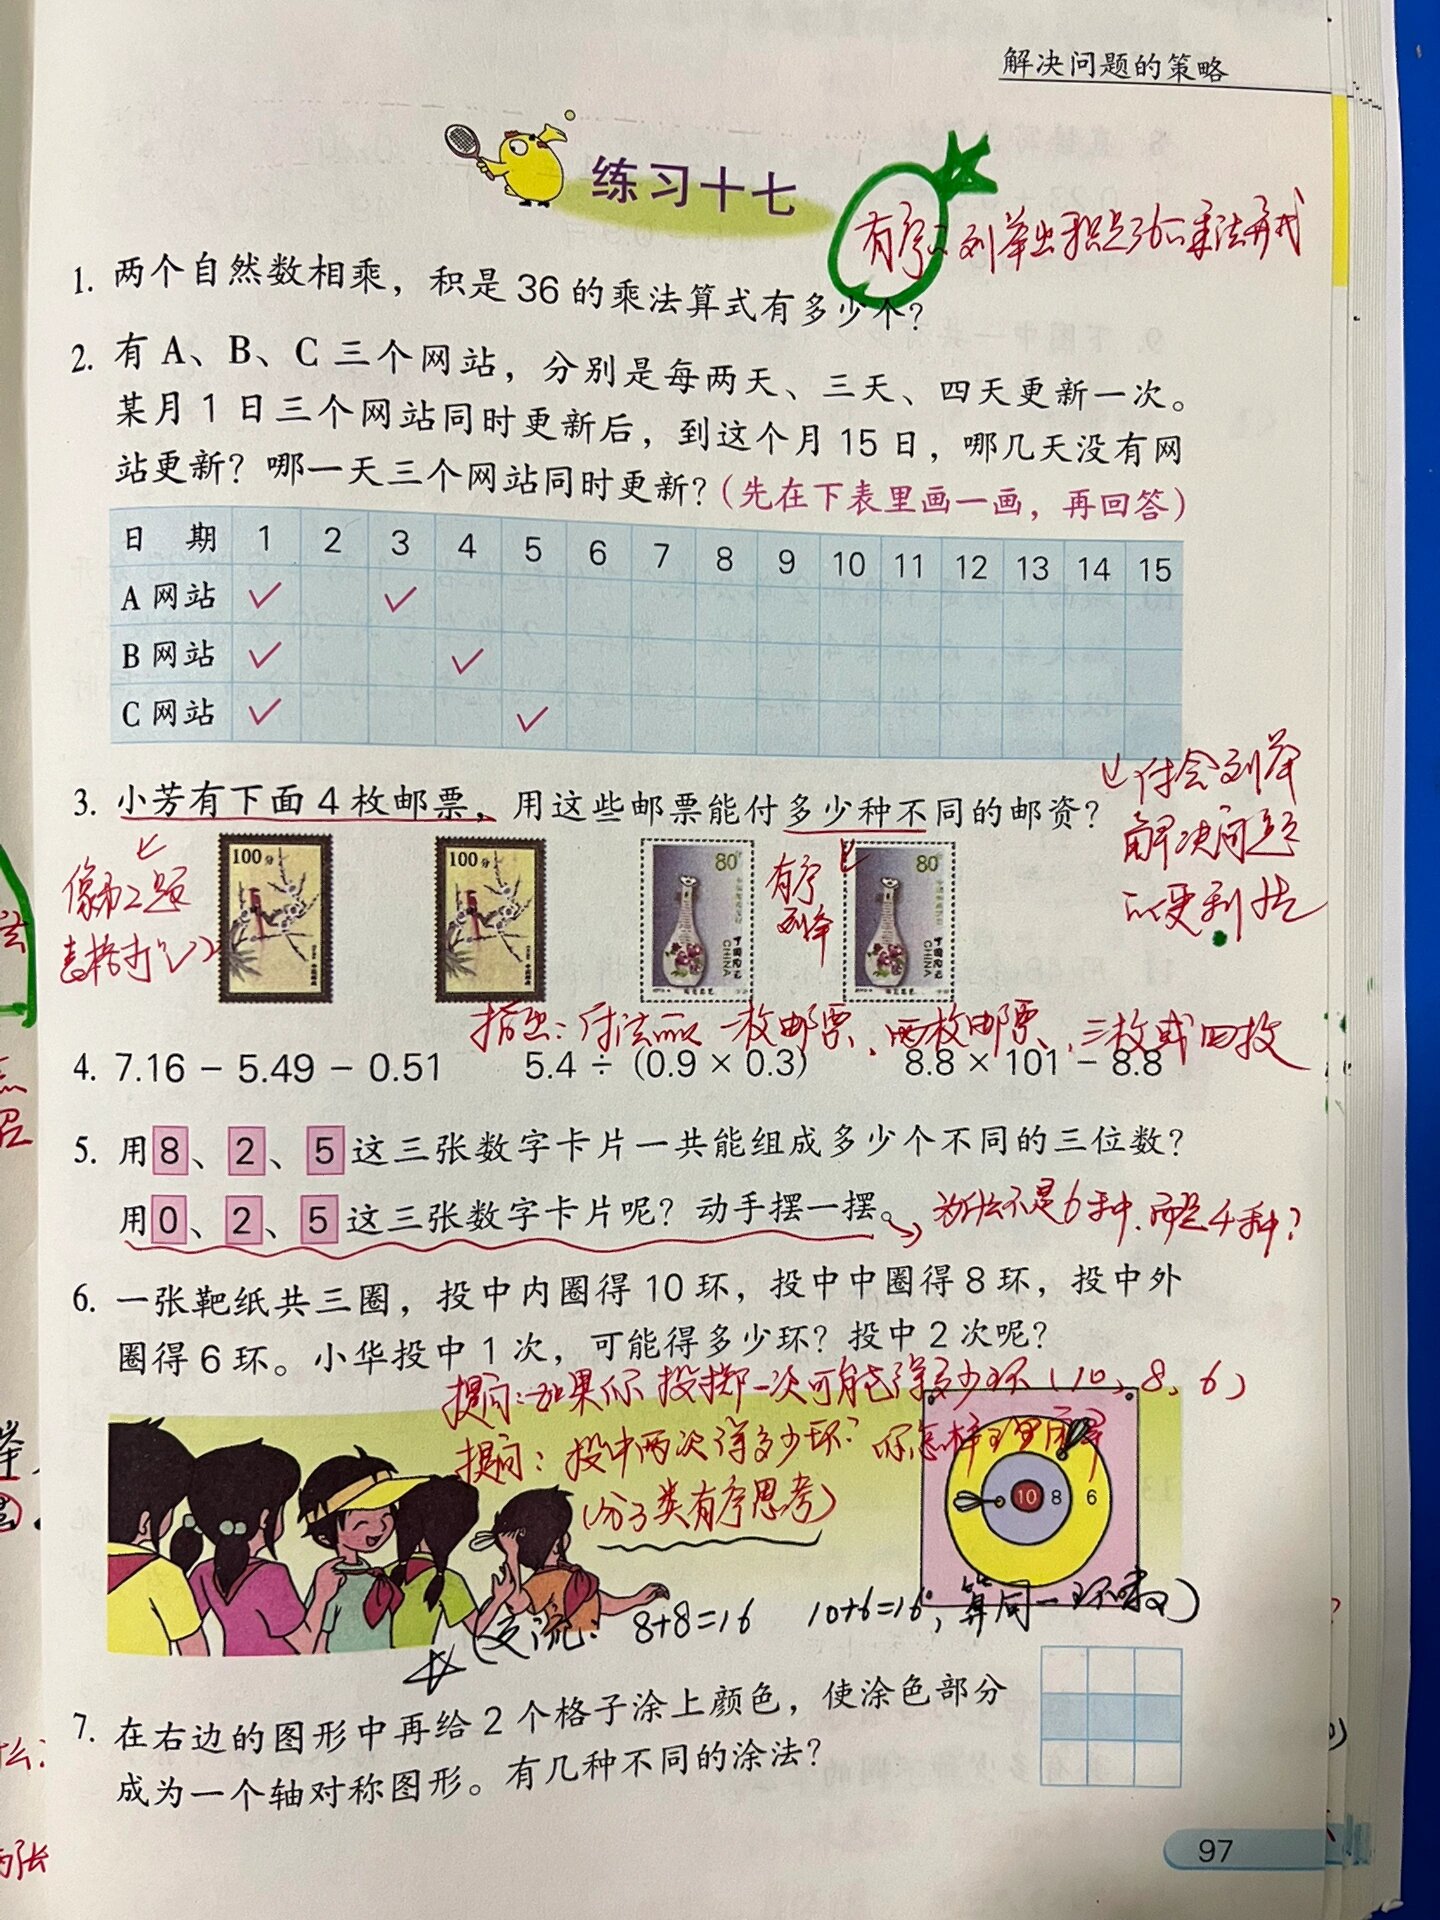 解决问题的策略
练习十七
有序：列举出积是36的乘法算式
1. 两个自然数相乘，积是 36 的乘法算式有多少个？
2. 有 A、B、C 三个网站，分别是每两天、三天、四天更新一次。
某月 1 日三个网站同时更新后，到这个月 15 日，哪几天没有网
站更新？哪一天三个网站同时更新？（先在下表里画一画，再回答）
日 期 1 2 3 4 5 6 7 8 9 10 11 12 13 14 15
A 网站 ✓ ✓
B 网站 ✓ ✓
C 网站 ✓ ✓
3. 小芳有下面 4 枚邮票，用这些邮票能付多少种不同的邮资？
体会列举
解决问题
的便利性
像第2题
表格打"✓"
100分
100分
80分
CHINA
有序
列举
80分
CHINA
指出：付法可以一枚邮票、两枚邮票、三枚或四枚
4. 7.16 − 5.49 − 0.51 5.4 ÷（0.9 × 0.3） 8.8 × 101 − 8.8
5. 用 8、2、5 这三张数字卡片一共能组成多少个不同的三位数？
用 0、2、5 这三张数字卡片呢？动手摆一摆。
为什么不是6种，而是4种？
6. 一张靶纸共三圈，投中内圈得 10 环，投中中圈得 8 环，投中外
圈得 6 环。小华投中 1 次，可能得多少环？投中 2 次呢？
提问：如果你投掷一次可能得多少环（10、8、6）
提问：投中两次得多少环？你怎样理解得
（分3类有序思考）
10 8 6
（交流：8+8=16 10+6=16，算同一环数）
7. 在右边的图形中再给 2 个格子涂上颜色，使涂色部分
成为一个轴对称图形。有几种不同的涂法？
97